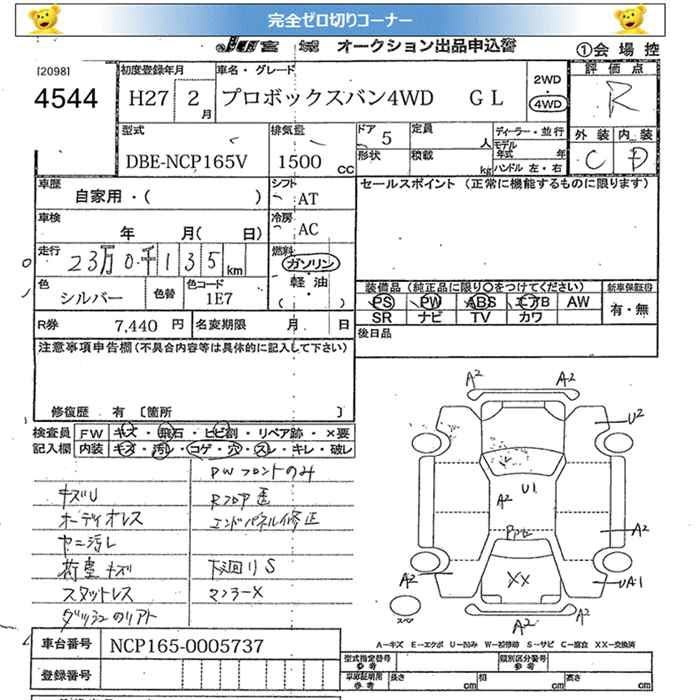 完全ゼロ切りコーナー
JU 宮城 オークション出品申込書 ①会場控
[2098]
4544
初度登録年月 H27 2月
車名・グレード プロボックスバン4WD GL
2WD
4WD
評価点 R
型式 DBE-NCP165V
排気量 1500 CC
ドア 5
定員 人
ディーラー・並行
形状
積載 kg
モデル年式 年
ハンドル 左・右
外装 内装
C D
車歴 自家用・( )
シフト AT
セールスポイント (正常に機能するものに限ります)
車検 年 月( 日)
冷房 AC
走行 23万0千135km
燃料 ガソリン
軽油
( )
色 シルバー
色替
色コード 1E7
装備品 (純正品に限り○をつけてください)
新車保証書
PS PW ABS エアB AW
有・無
SR ナビ TV カワ
R券 7,440 円
名変期限 月 日
後日品
注意事項申告欄(不具合内容等は具体的に記入して下さい)
修復歴 有 [箇所 ]
検査員 FW キズ・飛石・ヒビ割・リペア跡・×要
記入欄 内装 キズ・汚レ・コゲ・穴・スレ・キレ・破レ
PWフロントのみ
キズU
オーディオレス
エンドパネル修正
ヤニ汚レ
荷室キズ
下廻りS
スタットレス
マフラーX
A2 A2
U2
U1
A2
A2
A2
XX
UA1
A2 A2
スペア
A-キズ E-エクボ U-凹み W-補修跡 S-サビ C-腐食 XX-交換済
車台番号 NCP165-0005737
登録番号
型式指定番号 参考
類別区分番号 参考
車庫証明用 参考
長さ cm
幅 cm
高さ cm